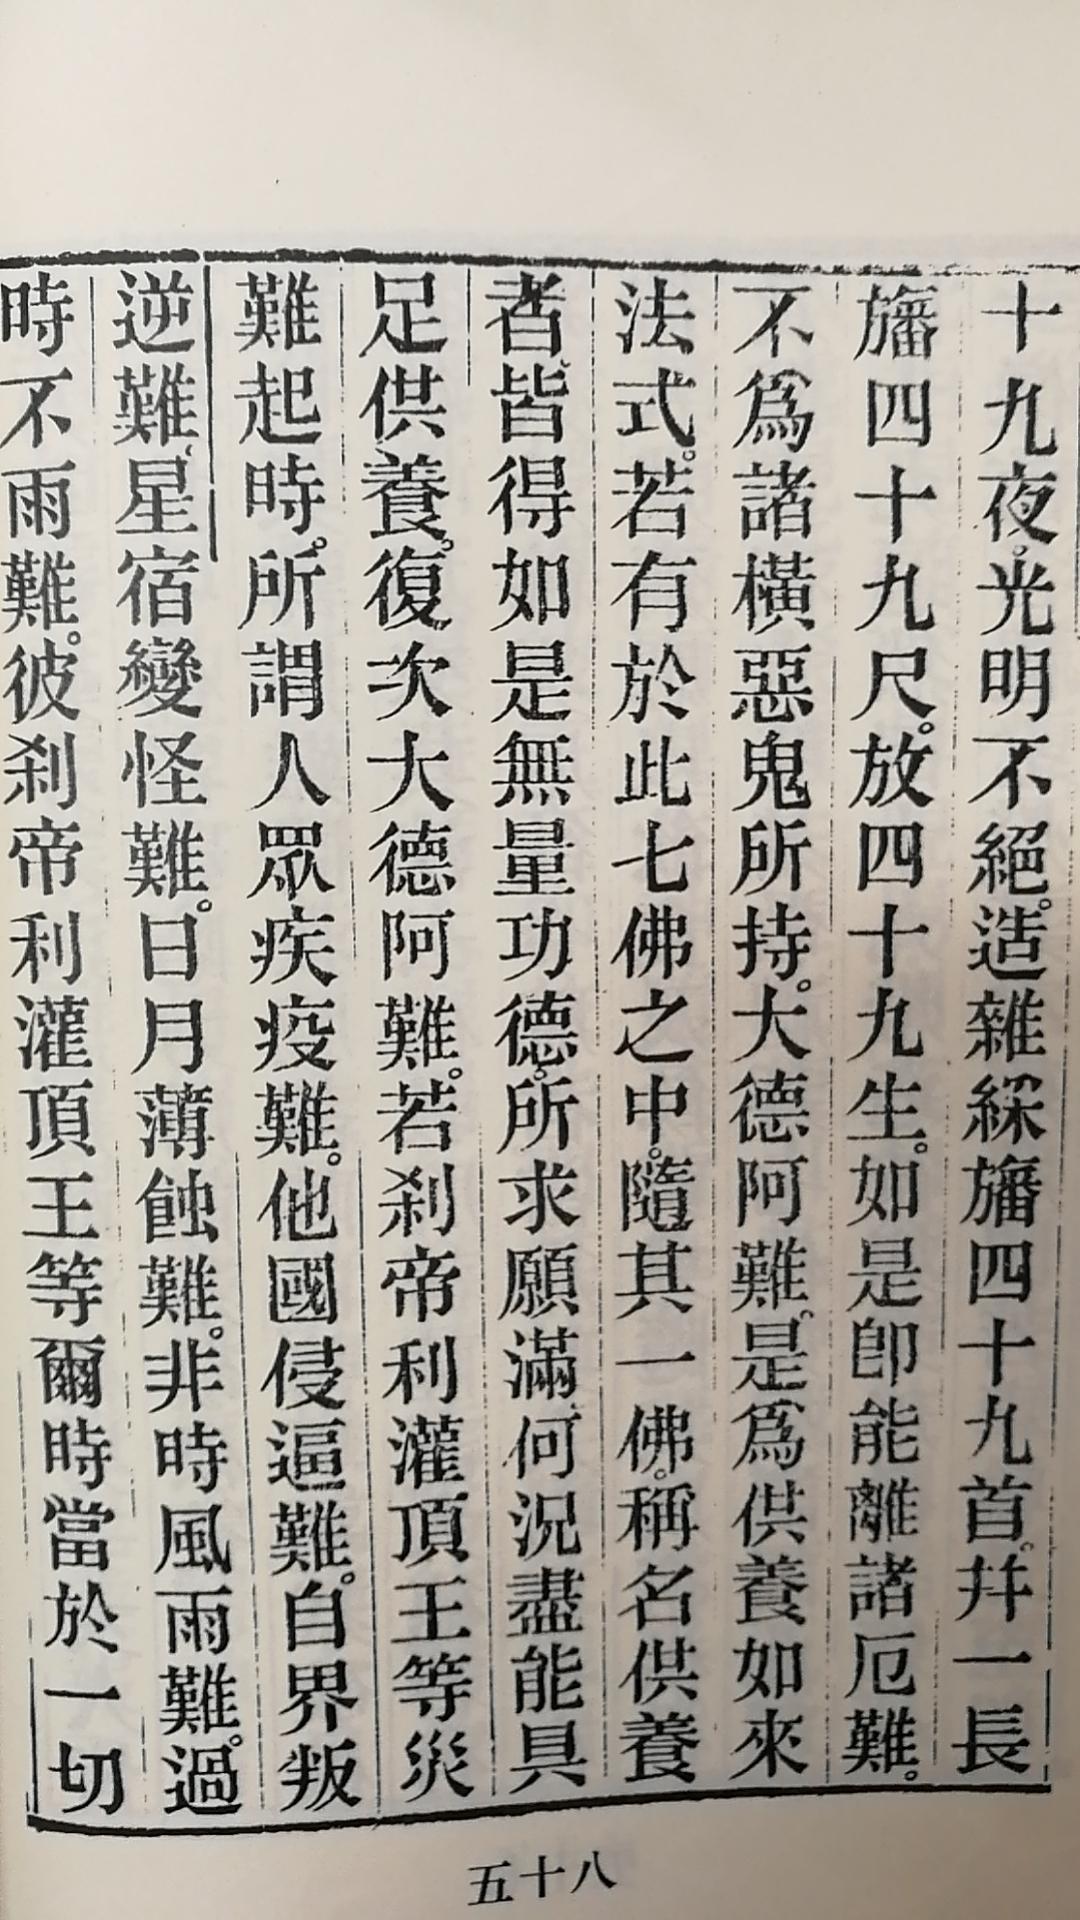 十九夜。光明不絕。造雜綵旛四十九首。幷一長
旛四十九尺。放四十九生。如是卽能離諸厄難。
不爲諸橫惡鬼所持。大德阿難。是爲供養如來
法式。若有於此七佛之中。隨其一佛。稱名供養
者、皆得如是無量功德。所求願滿、何況盡能具
足供養。復次大德阿難。若刹帝利灌頂王等災
難起時。所謂人眾疾疫難。他國侵逼難。自界叛
逆難、星宿變怪難。日月薄蝕難。非時風雨難。過
時不雨難。彼刹帝利灌頂王等爾時當於一切
五十八